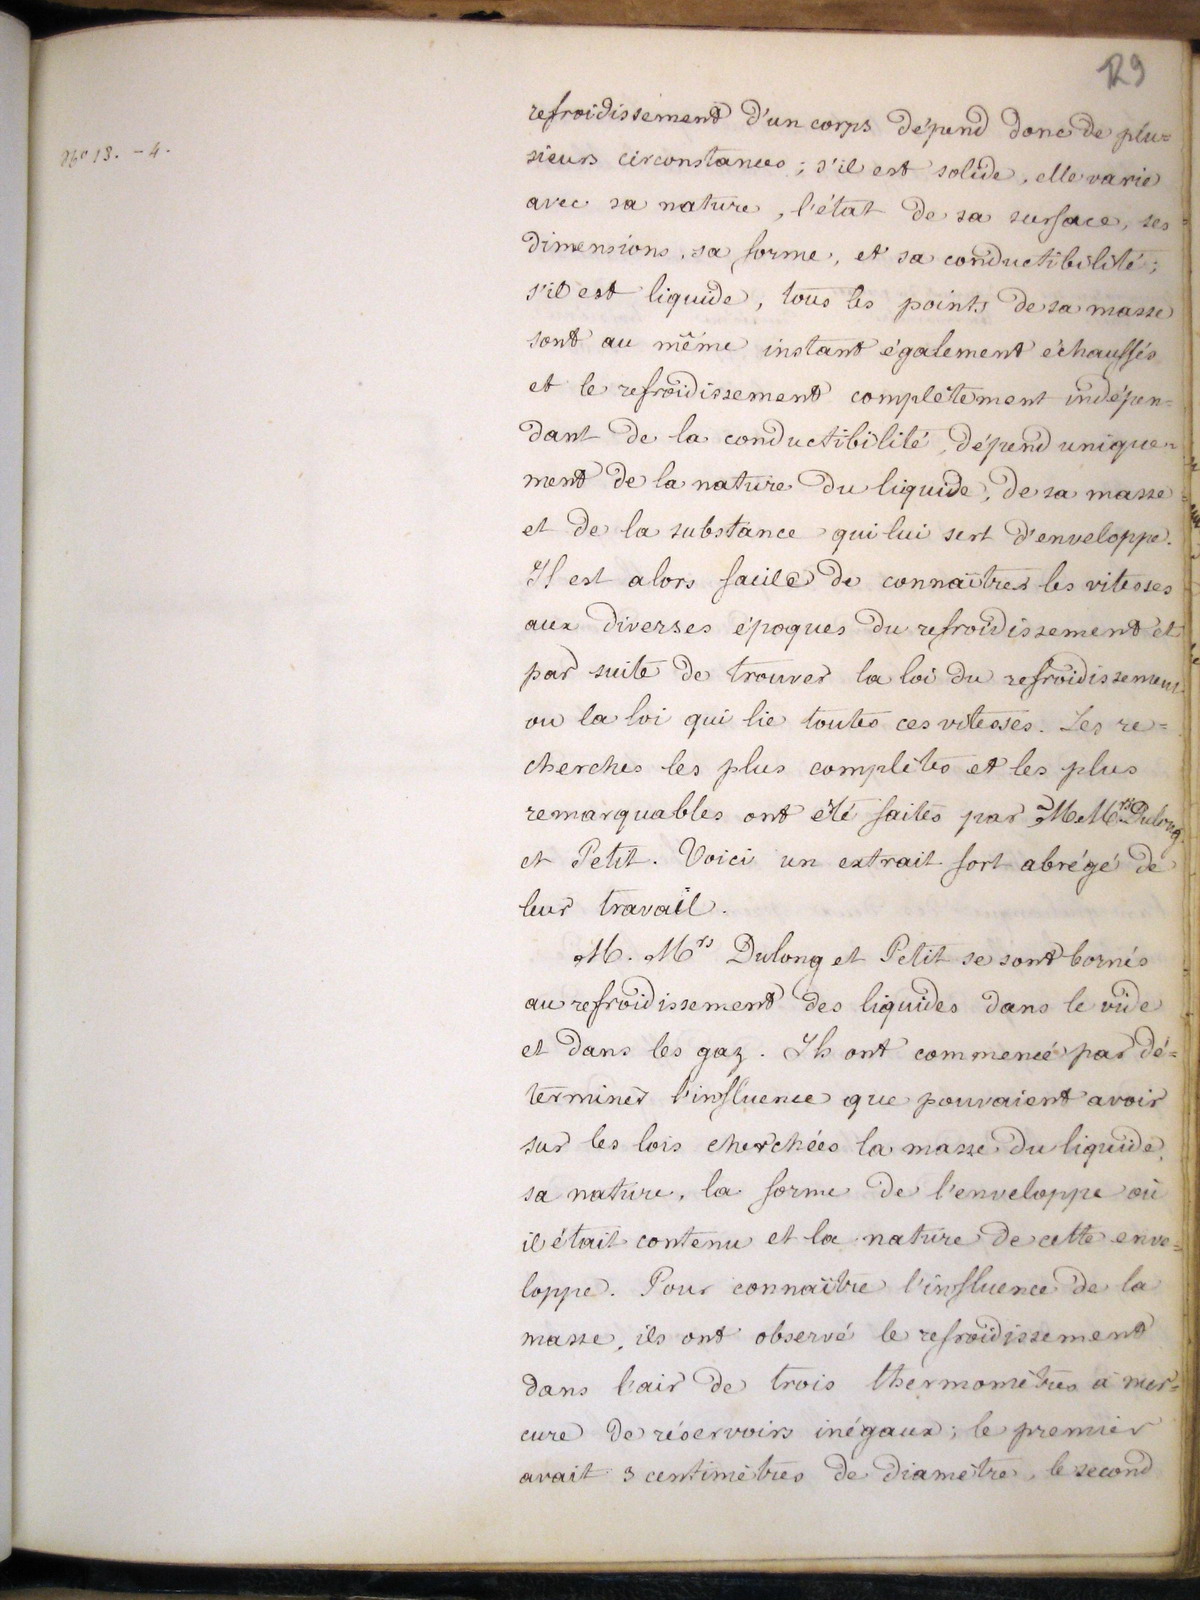 129
No 13. - 4.
refroidissement d'un corps dépend donc de plu=
sieurs circonstances ; s'il est solide, elle varie
avec sa nature, l'état de sa surface, ses
dimensions, sa forme, et sa conductibilité ;
s'il est liquide, tous les points de sa masse
sont au même instant également échauffés
et le refroidissement complètement indépen=
dant de la conductibilité, dépend unique=
ment de la nature du liquide, de sa masse
et de la substance qui lui sert d'enveloppe.
Il est alors facile de connaître les vitesses
aux diverses époques du refroidissement et
par suite de trouver la loi du refroidissement
ou la loi qui lie toutes ces vitesses. Les re=
cherches les plus complètes et les plus
remarquables ont été faites par M. Mrs Dulong
et Petit. Voici un extrait fort abrégé de
leur travail.
M. Mrs Dulong et Petit se sont bornés
au refroidissement des liquides dans le vide
et dans les gaz. Ils ont commencé par dé=
terminer l'influence que pouvaient avoir
sur les lois cherchées la masse du liquide,
sa nature, la forme de l'enveloppe où
il était contenu et la nature de cette enve=
loppe. Pour connaître l'influence de la
masse, ils ont observé le refroidissement
dans l'air de trois thermomètres à mer=
cure de réservoirs inégaux ; le premier
avait 3 centimètres de diamètre, le second